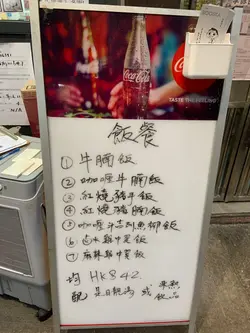 Coca-Cola
TASTE THE FEELING
飯餐
① 牛腩飯
② 咖喱牛腩飯
③ 紅燒豬手飯
④ 紅燒豬腩飯
⑤ 咖喱牛吉列魚柳飯
⑥ 鹵水雞中翼飯
⑦ 麻辣雞中翼飯
均 HK$42.
配 是日靚湯 或 飲品